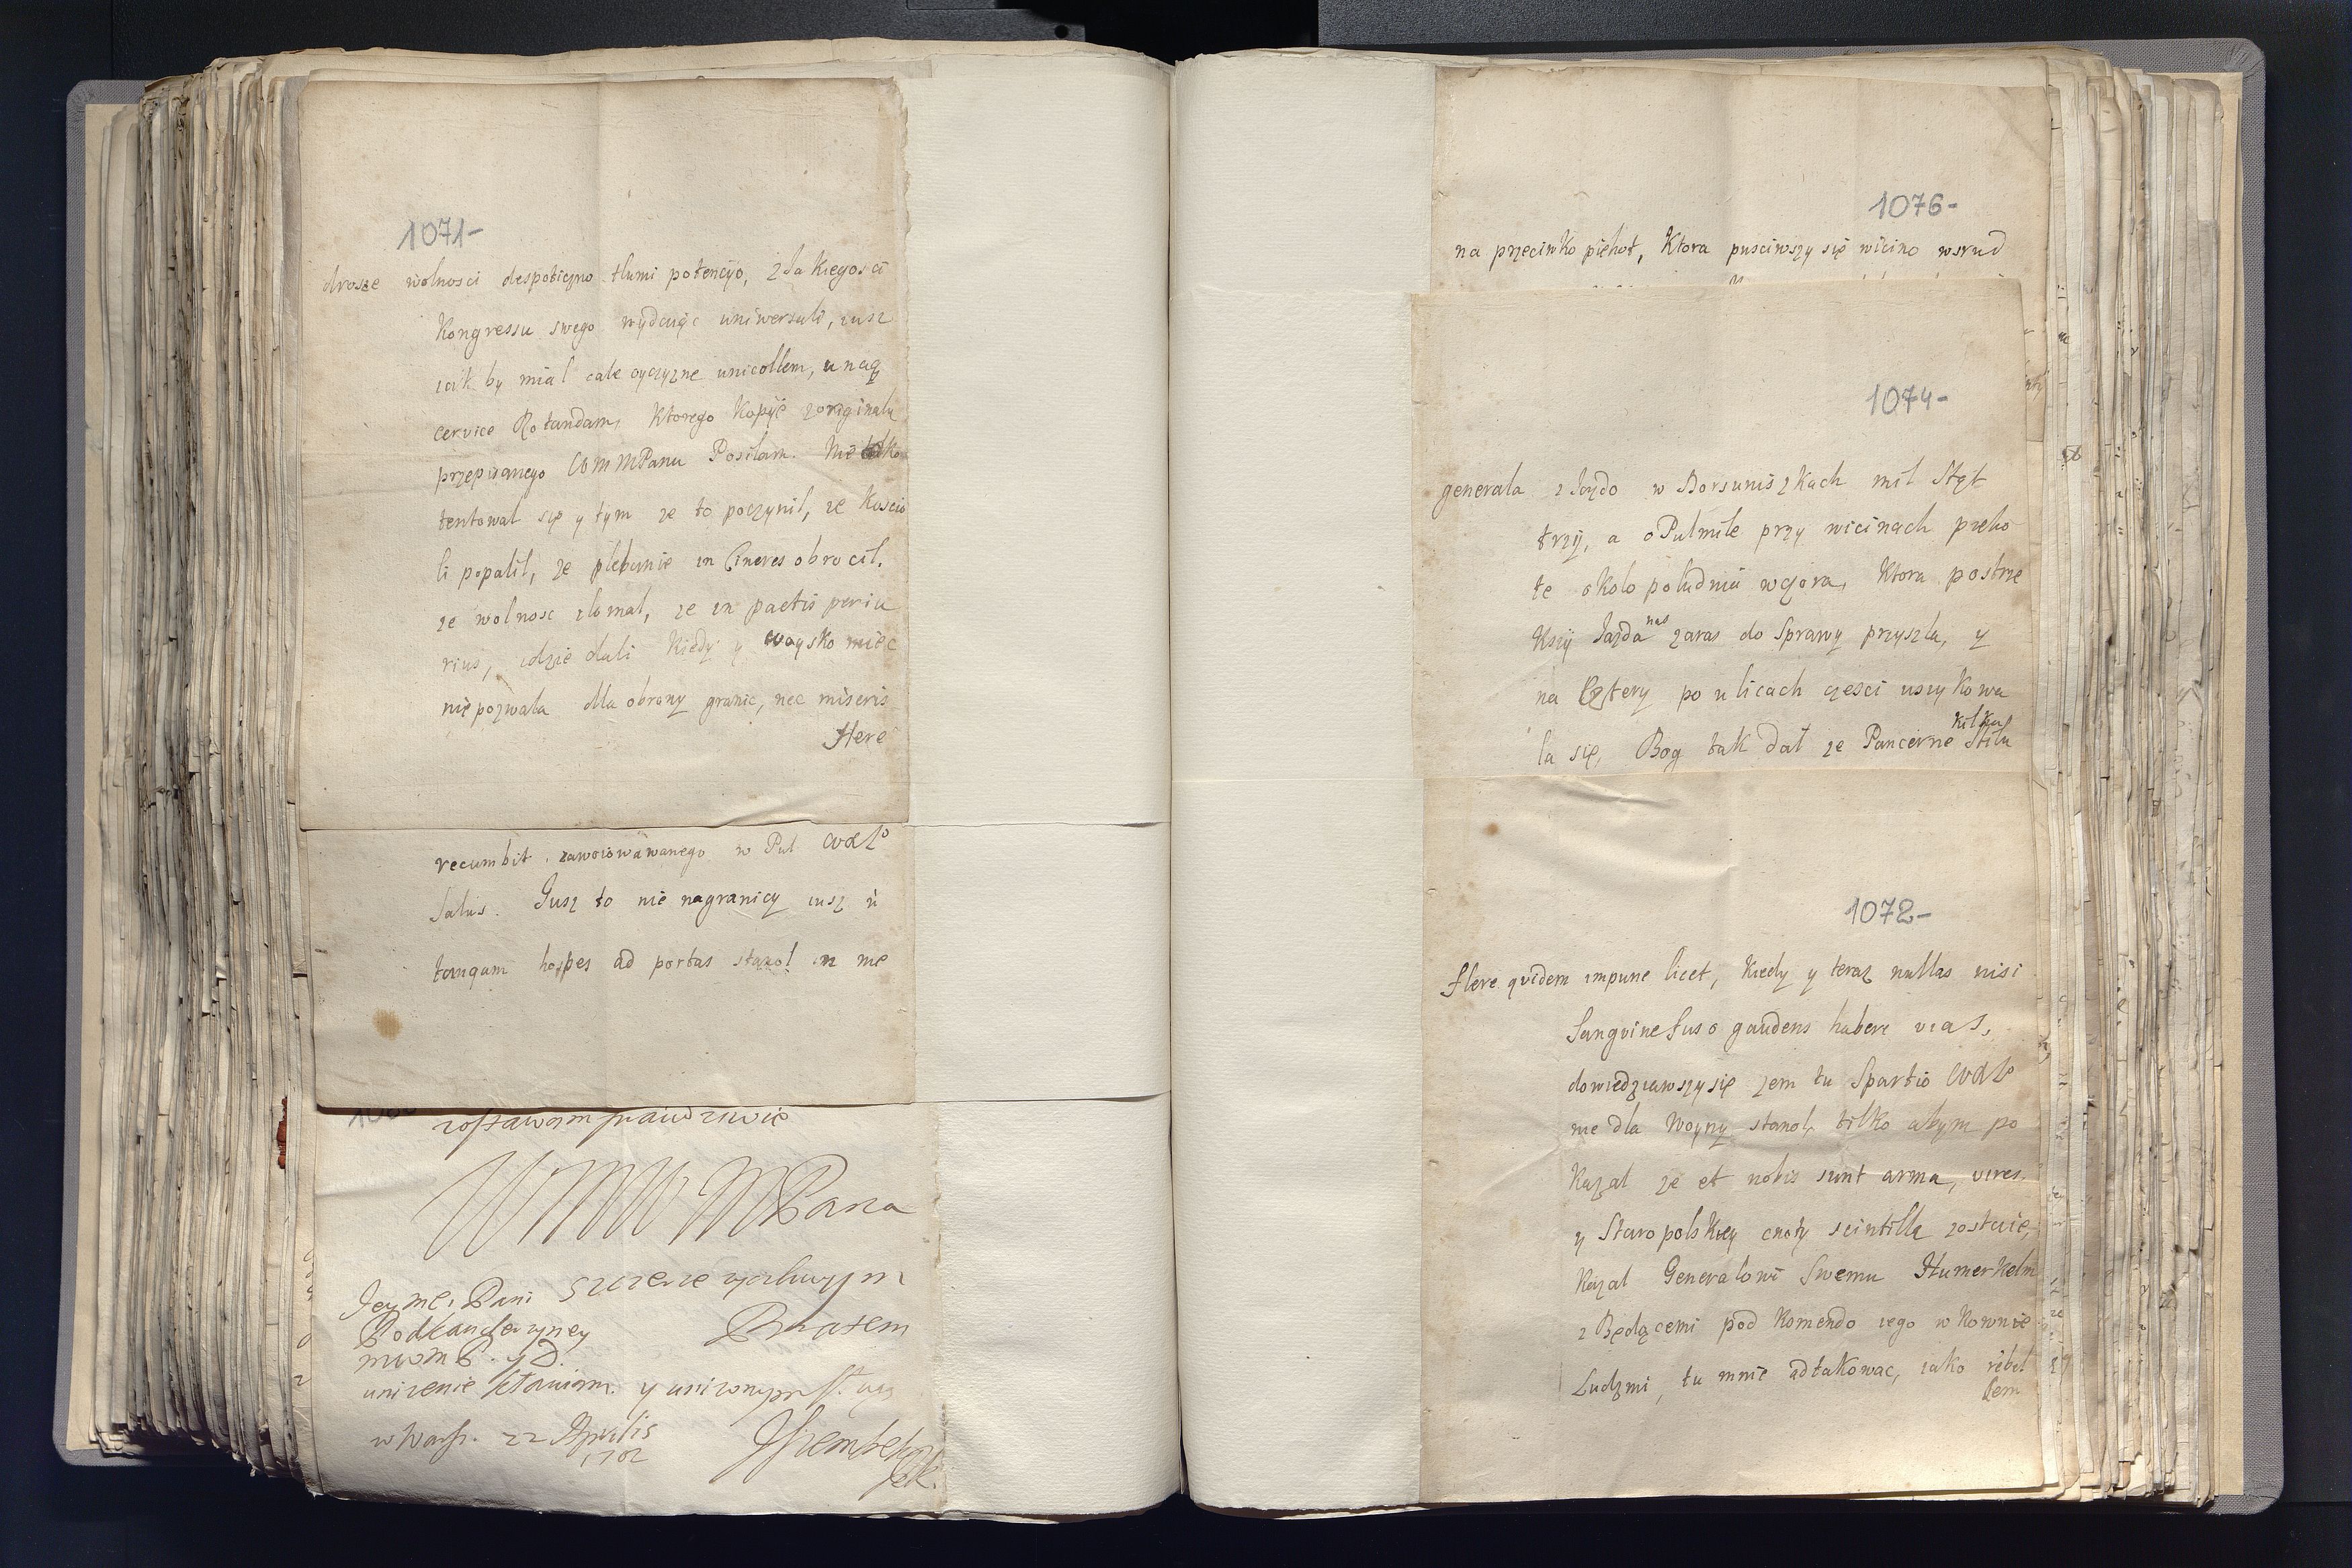 1071-
drosze wolnosci despoticzno tlumi potencyo, zJakiegosci
Kongressu swego wydaiąc uniwersali, iusz
iak by mial cale oyczyzne unicollem, unaq
cervice Rotandam, Ktorego Kopije zoriginalu
przepisanego WMMPanu Posilam. Nie
tentowal się y tym ze to poczynil, ze Koscio
li popalil, ze plebanie in Cineres obrocil,
ze wolnosc zlomal, ze in pactis periu
rius, idzie dali Kiedy y woysko miec
nie pozwala dla obrony granic, nec miseris
flere
recumbit, zawoiowawanego w Pul
Salus. Jusz to nie nagranicy iusz
tanquam hospes ad portas stanol
zostawam prawdziwie
WMMMPana
szczerze zyczliwym
Bratem
Jeymci Pani
Podkanclerzyney
mwmP. y D.
unizenie klaniam. y unizonym
w Warsz. 22 Aprilis
1702
JSzembek
1076-
na przeciwko piehot, Ktora pusciwszy się wicino wsrud
1074-
generala zJazdo w Borsuniszkach mil Stąt
trzy, a oPulmile przy wicinach pieho
te okolo poludnia wgora, Ktora postrze
Kszy Jazda nas zaras do Sprawy przyszla, y
na Cztery po ulicach czesci uszykowa
la się, Bog tak dal ze Pancerne Kilku
1072-
flere quidem impune licet, Kiedy y teraz nullas nisi
Sanguine fuso gaudens habere vias,
dowiedziawszysię zem tu Spartio
nie dla Woyny stanol, tilko abym po
Kazal ze et nobis sunt arma, vires,
y Staropolskiey cnoty scintilla zostaie,
Kazal Generalowi Swemu Humerhelm
z Będącemi pod Komendo iego w Kownie
Ludzmi, tu mnie adtakowac, iako rebel
lem